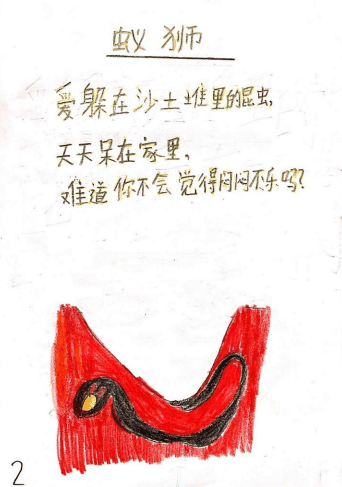 蚁狮
爱躲在沙土堆里的昆虫,
天天呆在家里,
难道你不会觉得闷闷不乐吗?
2